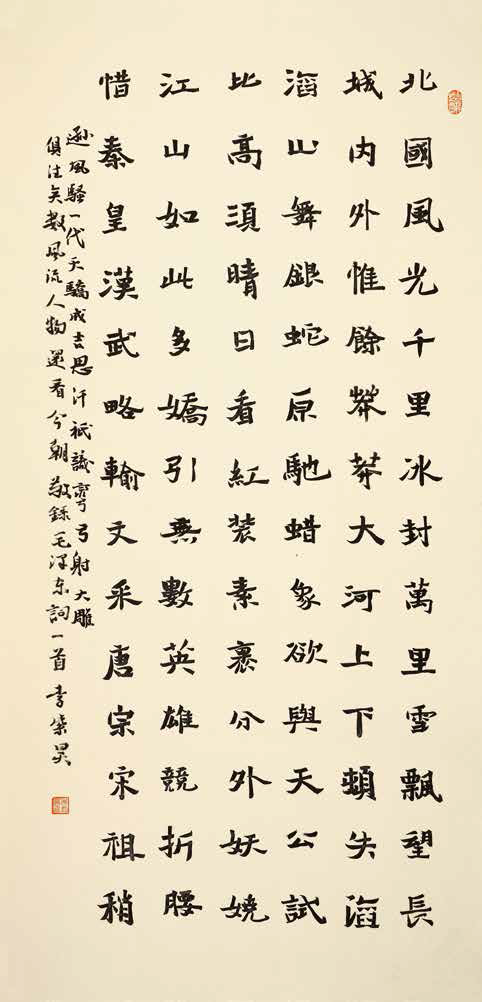 北國風光千里冰封萬里雪飄望長
城内外惟餘莽莽大河上下頓失滔
滔山舞銀蛇原馳蜡象欲與天公試
比高須晴日看紅装素裹分外妖嬈
江山如此多嬌引無數英雄競折腰
惜秦皇漢武略輸文采唐宗宋祖稍
遜風騷一代天驕成吉思汗祇識彎弓射大雕
俱往矣數風流人物還看今朝敬錄毛泽东詞一首 李